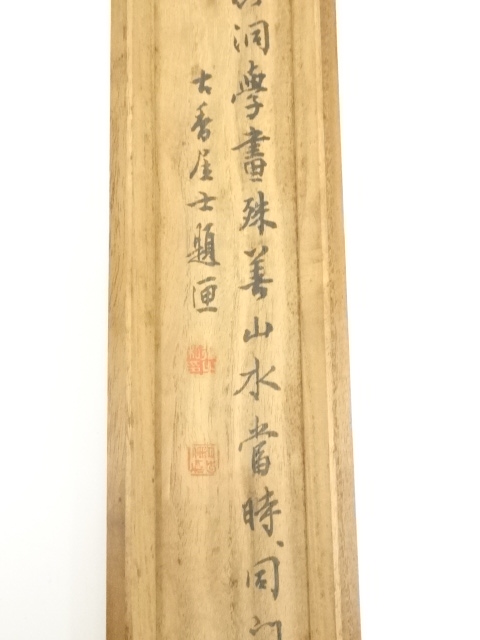 洞學畫殊善山水當時同
古香居士題匣